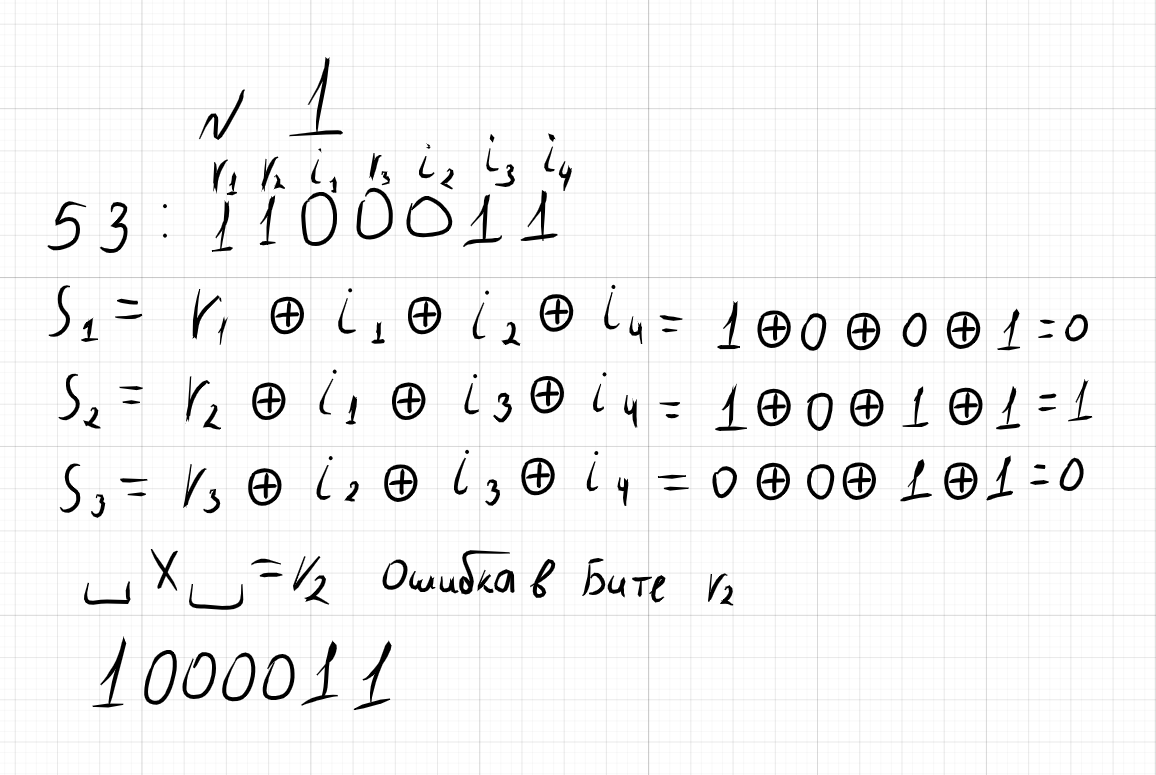 № 1
r₁ r₂ i₁ r₃ i₂ i₃ i₄
53 : 1100011
S₁ = r₁ ⊕ i₁ ⊕ i₂ ⊕ i₄ = 1 ⊕ 0 ⊕ 0 ⊕ 1 = 0
S₂ = r₂ ⊕ i₁ ⊕ i₃ ⊕ i₄ = 1 ⊕ 0 ⊕ 1 ⊕ 1 = 1
S₃ = r₃ ⊕ i₂ ⊕ i₃ ⊕ i₄ = 0 ⊕ 0 ⊕ 1 ⊕ 1 = 0
␣ X ␣ = r₂ Ошибка в Бите r₂
1000011